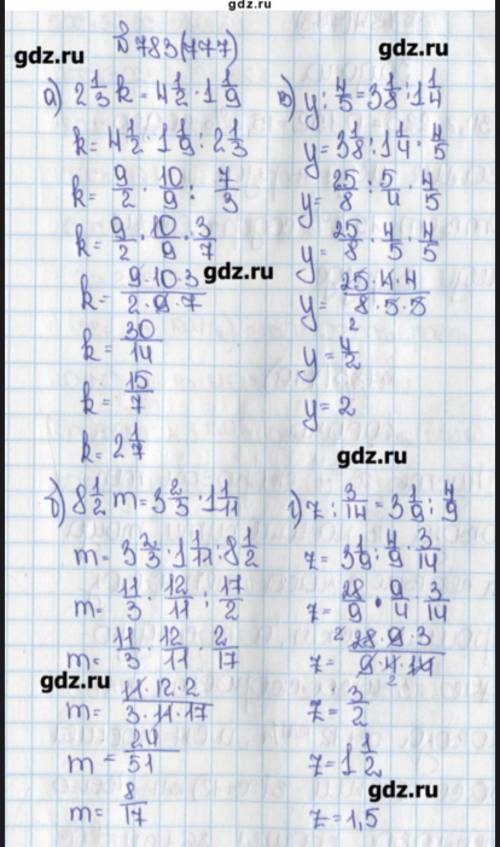 gdz.ru
№783(777)
gdz.ru
gdz.ru
а) 2 1/3 k = 4 1/2 · 1 1/9
k = 4 1/2 · 1 1/9 : 2 1/3
k = 9/2 · 10/9 : 7/3
k = 9/2 · 10/9 · 3/7
k = 9·10·3/2·9·7
k = 30/14
k = 15/7
k = 2 1/7
в) y : 4/5 = 3 1/8 : 1 1/4
y = 3 1/8 : 1 1/4 · 4/5
y = 25/8 : 5/4 · 4/5
y = 25/8 · 4/5 · 4/5
gdz.ru
y = 25·4·4/8·5·5
2
y = 4/2
y = 2
gdz.ru
б) 8 1/2 m = 3 2/3 · 1 1/11
m = 3 2/3 · 1 1/11 : 8 1/2
m = 11/3 · 12/11 : 17/2
m = 11/3 · 12/11 · 2/17
gdz.ru
m = 11·12·2/3·11·17
m = 24/51
m = 8/17
г) z : 3/14 = 3 1/9 : 4/9
z = 3 1/9 : 4/9 · 3/14
z = 28/9 · 9/4 · 3/14
2
z = 28·9·3/9·4·14
2
z = 3/2
z = 1 1/2
gdz.ru
z = 1,5